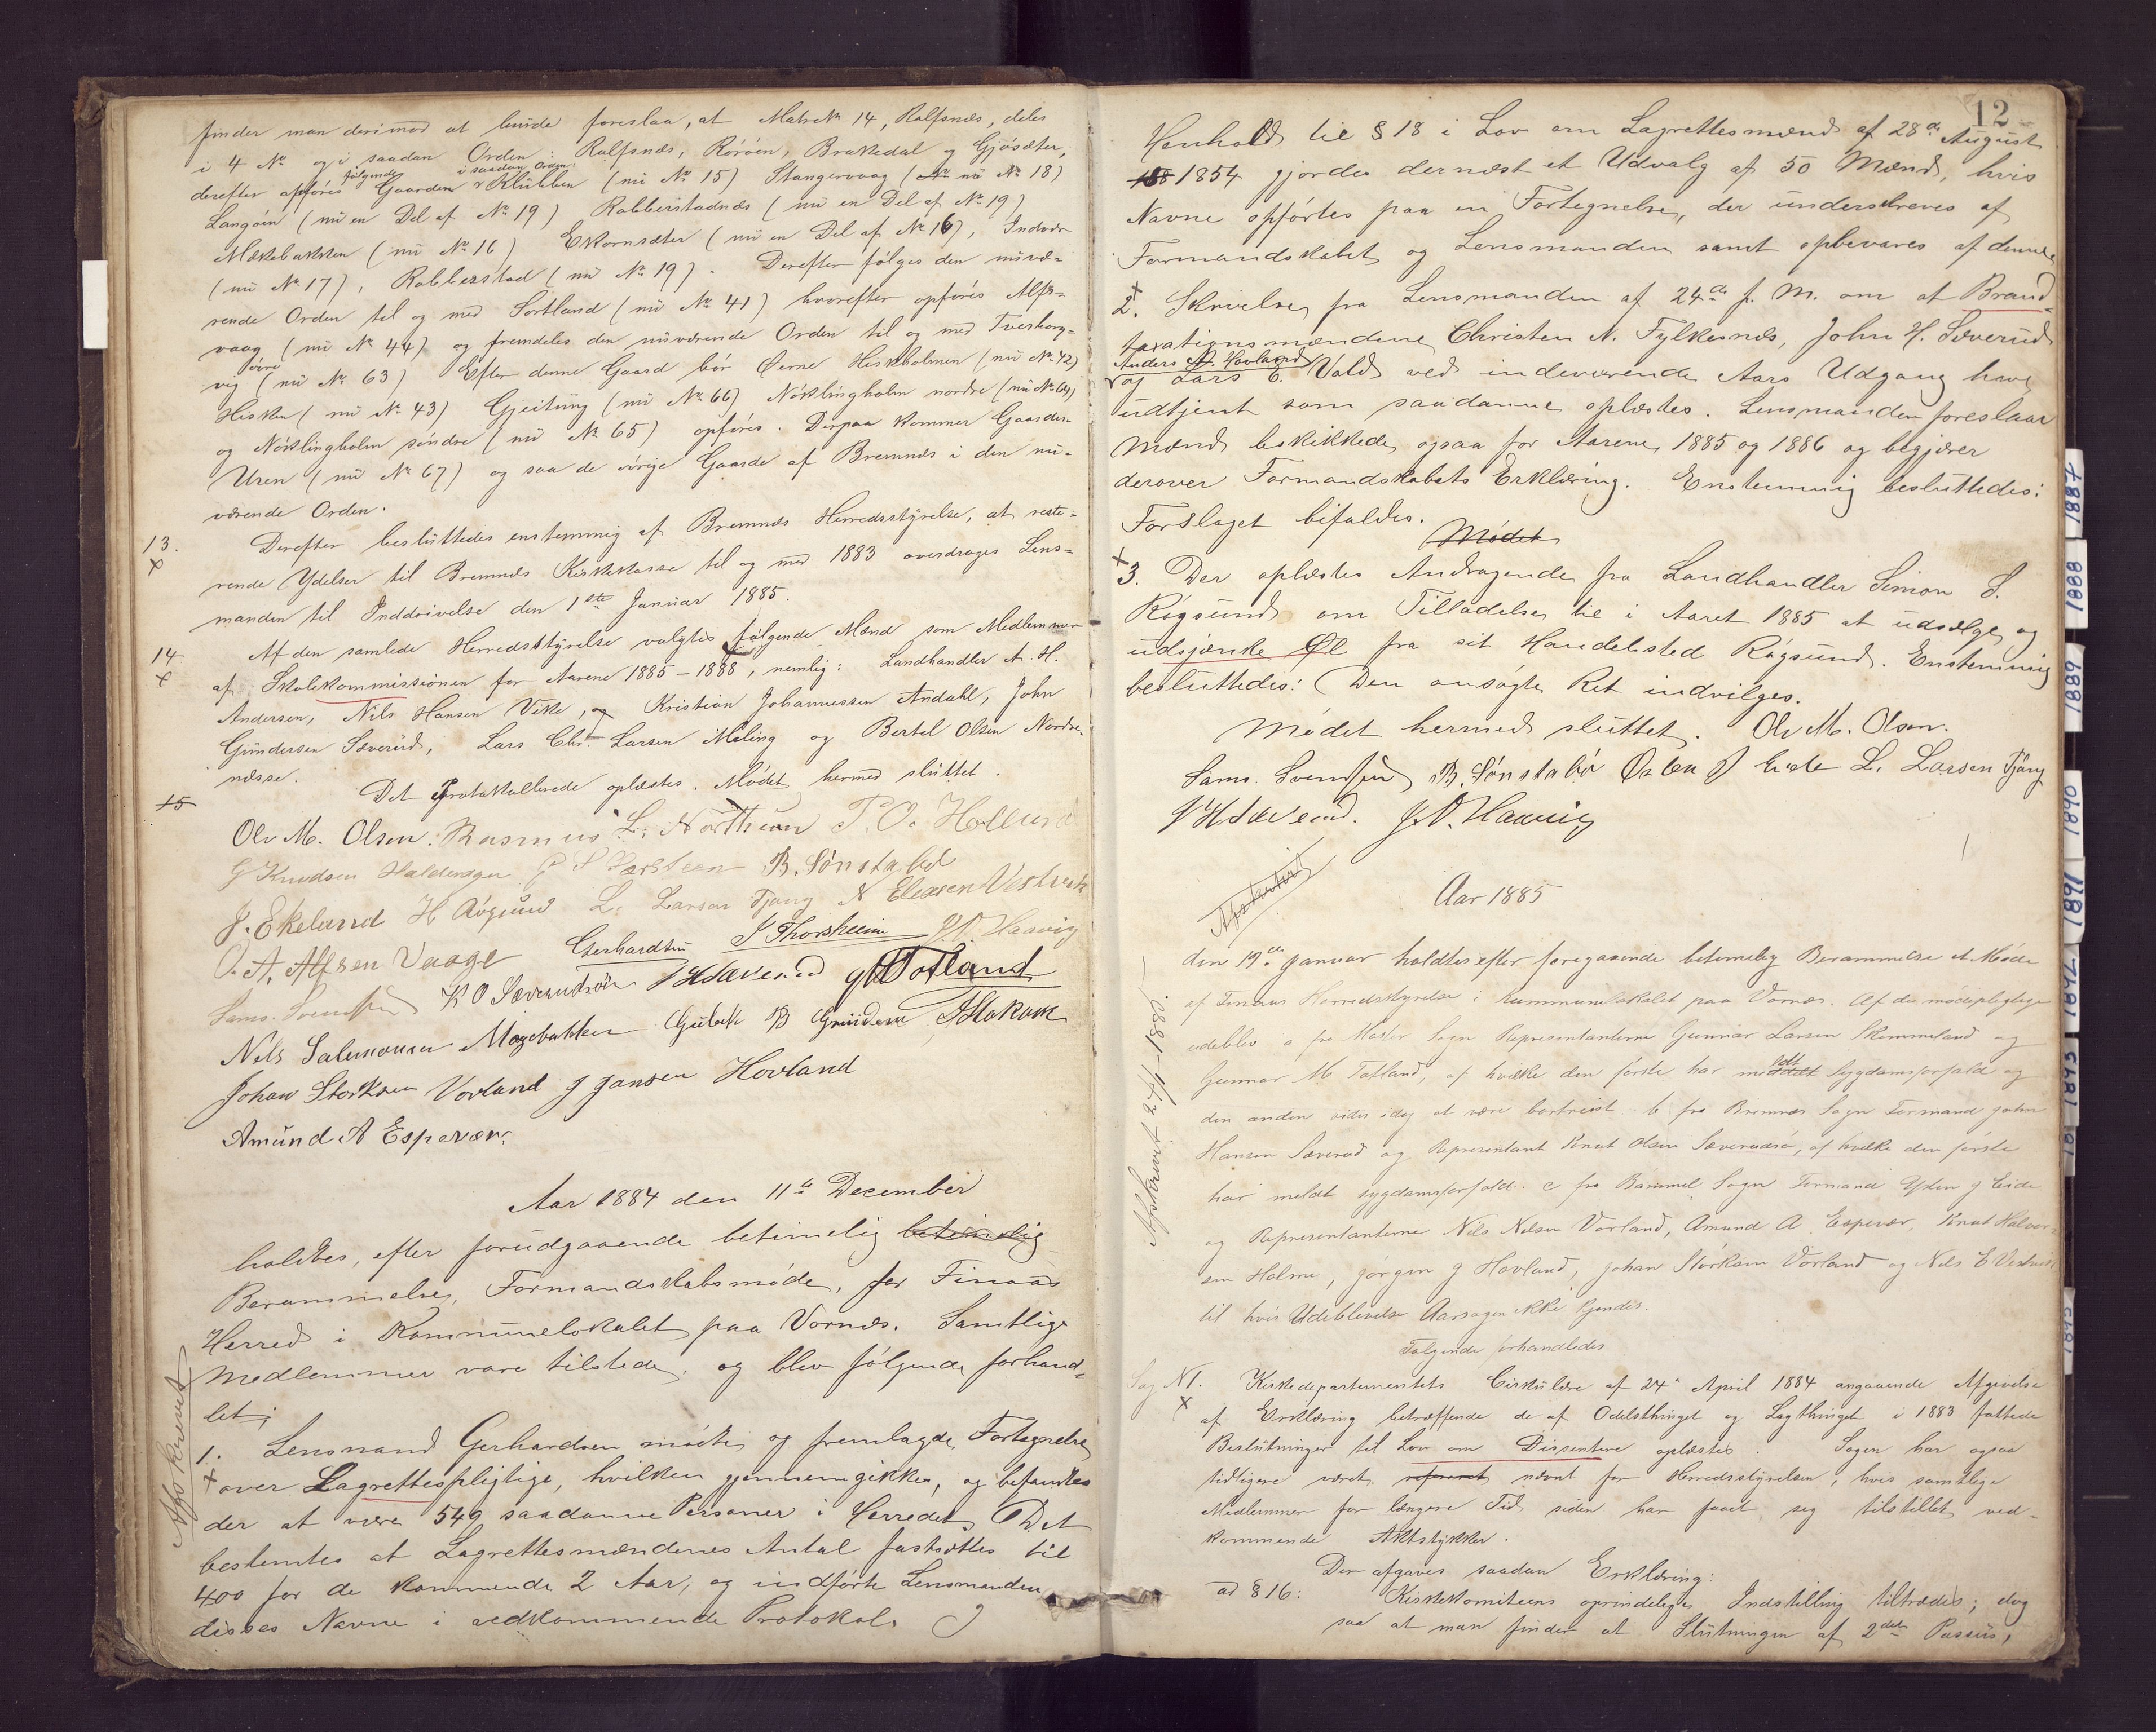 finder man derimod at burde foreslaa, at Matr.№ 14, Rolfsnæs, deles
i 4 № og i saadan Orden: Rolfsnæs, Rørøen, Brakedal og Gjøsæter,
derefter opføres følgende Gaarder i saadan Orden: Klubben (nu № 15) Stangervaag (nu № 18)
Langøen (nu en Del af № 19) Robberstadnæs (nu en Del af № 19)
Mækebakken (nu № 16) Ekornsæter (nu en Del af № 16), Indvær
(nu № 17), Robberstad (nu № 19). Derefter følges den nuvæ-
rende Orden til og med Sortland (nu № 41) hvorefter opføres Alfs-
vaag (nu № 44) og fremdeles den nuværende Orden til og med Tverborg-
vig (nu № 63) Efter denne Gaard bør Øerne Hiskholmen (nu № 42)
Hisken (nu № 43) Gjeitung (nu № 66) Nøklingholm nordre (nu № 64)
og Nøklingholm søndre (nu № 65) opføres. Derpaa kommer Gaarden
Uren (nu № 67) og saa de øvrige Gaarde af Bremnæs i den nu-
værende Orden.
13. Derefter besluttedes enstemmig af Bremnæs Herredsstyrelse, at reste-
x rende Ydelser til Bremnæs Kirkekasse til og med 1883 overdrages Lens-
manden til Inddrivelse den 1ste Januar 1885.
14 Af den samlede Herredsstyrelse valgtes følgende Mænd som Medlemmer
x af Skolekommissionen for Aarene 1885-1888, nemlig: Landhandler A. H.
Andersen, Nils Hansen Vike, og Kristian Johannessen Andahl, John
Gundersen Sæverud, Lars Chr. Larsen Meling og Bertel Olsen Nordre-
næsse.
15 Det Protokollerede oplæstes. Mødet hermed sluttet.
Ole M. Olsen. Rasmus L. Northun T. O. Hollund
G Knudsen Haldorsger B. Sønstabø
J. Ekeland H Røgsund L. Larsen Fjang N Eliasen Vestvik
O. A. Alfsen Vaage Gerhardsen J Thorsheim J. O. Haavig
Sams. Svendsen K O Sæverudsøen J H Sæverud Totland
Nils Salemonsen Møgebakken Gubek B Grindem J Hokam
Johan Storksen Vorland J Jansen Hovland
Amund A Espevær.
Aar 1884 den 11te December
holdtes, efter forudgaaende betimelig betimelig
Berammelse, Formandskabsmøde, for Finaas
Herred i Kommunelokalet paa Vornæs. Samtlige
Medlemmer vare tilstede, og blev følgende forhand-
let;
Afskrevet
1. Lensmand Gerhardsen mødte og fremlagde Fortegnelse
x over Lagrettespligtige, hvilken gjennemgikkes, og befandtes
der at være 549 saadanne Personer i Herredet. Det
bestemtes at Lagrettesmændenes Antal fastsættes til
400 for de kommende 2 Aar, og indførte Lensmanden
disses Navne i vedkommende Protokol. I
12
Henhold til § 18 i Lov om Lagrettesmænd af 28de August
188 1854 gjordes dernæst et Udvalg af 50 Mænd, hvis
Navne opførtes paa en Fortegnelse, der underskreves af
Formandskabet og Lensmanden samt opbevares af denne
x
2. Skrivelse fra Lensmanden af 24de f. M. om at Brand-
taxationsmændene Christen N. Fylkesnæs, John H. Sæverud
Anders A. Havland
og Lars C. Vold ved indeværende Aars Udgang have
udtjent som saadanne oplæstes. Lensmanden foreslaar
Mænd beskikkede ogsaa for Aarene 1885 og 1886 og begjærer
derover Formandskabets Erklæring. Enstemmig besluttedes:
Forslaget bifaldes.
Mødet
x
3. Der oplæstes Andragende fra Landhandler Simon S.
Røgsund om Tilladelse til i Aaret 1885 at udsælge og
udskjænke Øl fra sit Handelssted Røgsund. Enstemmig
besluttedes: Den ansøgte Ret indvilges.
Mødet hermed sluttet. Ole M. Olsen.
Sams. Svendsen B. Sønstabø Østen J Eide L. Larsen Fjang
J H Sæverud. J. O. Haavig
Afskrevet
Aar 1885
den 19de Januar holdtes efter foregaaende betimelig Berammelse et Møde
af Finnaas Herredsstyrelse i Kommunelokalet paa Vornæs. Af de mødepligtige
udeblev a fra Moster Sogn Repræsentanterne Gunnar Larsen Skimmeland og
Gunnar M Totland, af hvilke den første har meldt Sygdomsforfald og
den anden vides idag at være bortreist. b fra Bremnæs Sogn Formand John
Hansen Sæverud og Repræsentant Knut Olsen Sæverudsø, af hvilke den første
har meldt sygdomsforfald. c fra Bømmel Sogn Formand Østen J Eide
og Repræsentanterne Nils Nilsen Vorland, Amund A Espevær, Knut Halvor-
sen Holme, Jørgen J Hovland, Johan Størksen Vorland og Nils E Vestvik,
til hvis Udeblivelse Aarsagen ikke kjendes.
Følgende forhandledes
Afskrevet 24/1 1885.
Sag № 1. Kirkedepartementets Cirkulære af 24de April 1884 angaaende Afgivelse
x af Erklæring betræffende de af Odelsthinget og Lagthinget i 1883 fattede
Beslutninger til Lov om Dissentere oplæstes. Sagen har ogsaa
tidligere været refereret nævnt for Herredsstyrelsen, hvis samtlige
Medlemmer for længere Tid siden har faaet sig tilstillet ved-
kommende Aktstykker.
Der afgaves saadan Erklæring:
ad § 16: Kirkekomiteens oprindelige Indstilling tiltrædes; dog
saa at man finder at Slutningen af 2det Passus,
1887
1888
1889
1890
1891
1892
1893
1895